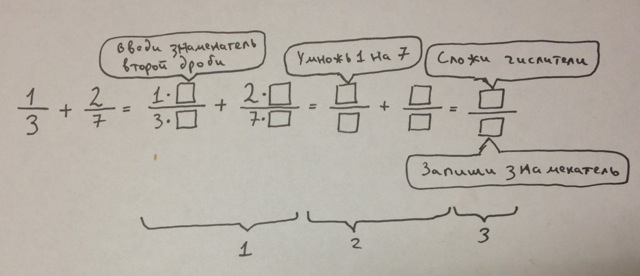 Вводи знаменатель
второй дроби
Умножь 1 на 7
Сложи числители
1/3 + 2/7 = 1·□/3·□ + 2·□/7·□ = □/□ + □/□ = □/□
Запиши знаменатель
1
2
3